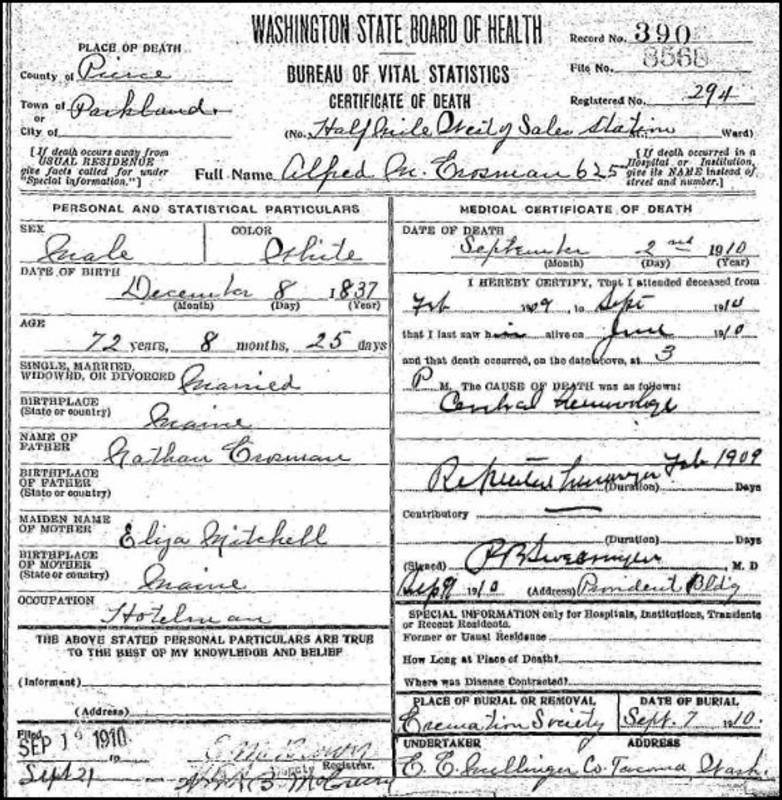 WASHINGTON STATE BOARD OF HEALTH
BUREAU OF VITAL STATISTICS
CERTIFICATE OF DEATH
Record No. 390
8568
File No.
Registered No. 294
PLACE OF DEATH
County of Pierce
Town of Parkland
or
City of
(No. Half Mile West of Sales Station Ward)
[If death occurs away from
USUAL RESIDENCE
give facts called for under
"Special information."]
Full Name Alfred M. Crosman 625
[If death occurred in a
Hospital or Institution,
give its NAME instead of
street and number.]
PERSONAL AND STATISTICAL PARTICULARS
SEX
Male
COLOR
White
DATE OF BIRTH
December 8 1837
(Month) (Day) (Year)
AGE
72 years, 8 months, 25 days
SINGLE, MARRIED,
WIDOWED, OR DIVORCED Married
BIRTHPLACE
(State or country) Maine
NAME OF
FATHER Nathan Crosman
BIRTHPLACE
OF FATHER
(State or country)
MAIDEN NAME
OF MOTHER Eliza Mitchell
BIRTHPLACE
OF MOTHER
(State or country) Maine
OCCUPATION
Hotelman
THE ABOVE STATED PERSONAL PARTICULARS ARE TRUE
TO THE BEST OF MY KNOWLEDGE AND BELIEF
(Informant)
(Address)
Filed
SEP 19 1910
Sept 21
Deputy Registrar.
MEDICAL CERTIFICATE OF DEATH
DATE OF DEATH
September 2nd 1910
(Month) (Day) (Year)
I HEREBY CERTIFY, That I attended deceased from
Feb 1909, to Sept 1910
that I last saw him alive on June 1910
and that death occurred, on the date above, at 3
P M. The CAUSE OF DEATH was as follows:
Cerebral Hemorrhage
Feb 1909
(Duration) Days
Contributory
(Duration) Days
(Signed) M. D
Sep 9 1910 (Address) Provident Bldg
SPECIAL INFORMATION only for Hospitals, Institutions, Transients
or Recent Residents.
Former or Usual Residence
How Long at Place of Death?
Where was Disease Contracted?
PLACE OF BURIAL OR REMOVAL
Cremation Society
DATE OF BURIAL
Sept. 7 1910.
UNDERTAKER
ADDRESS
C. C. Mellinger Co. Tacoma, Wash.